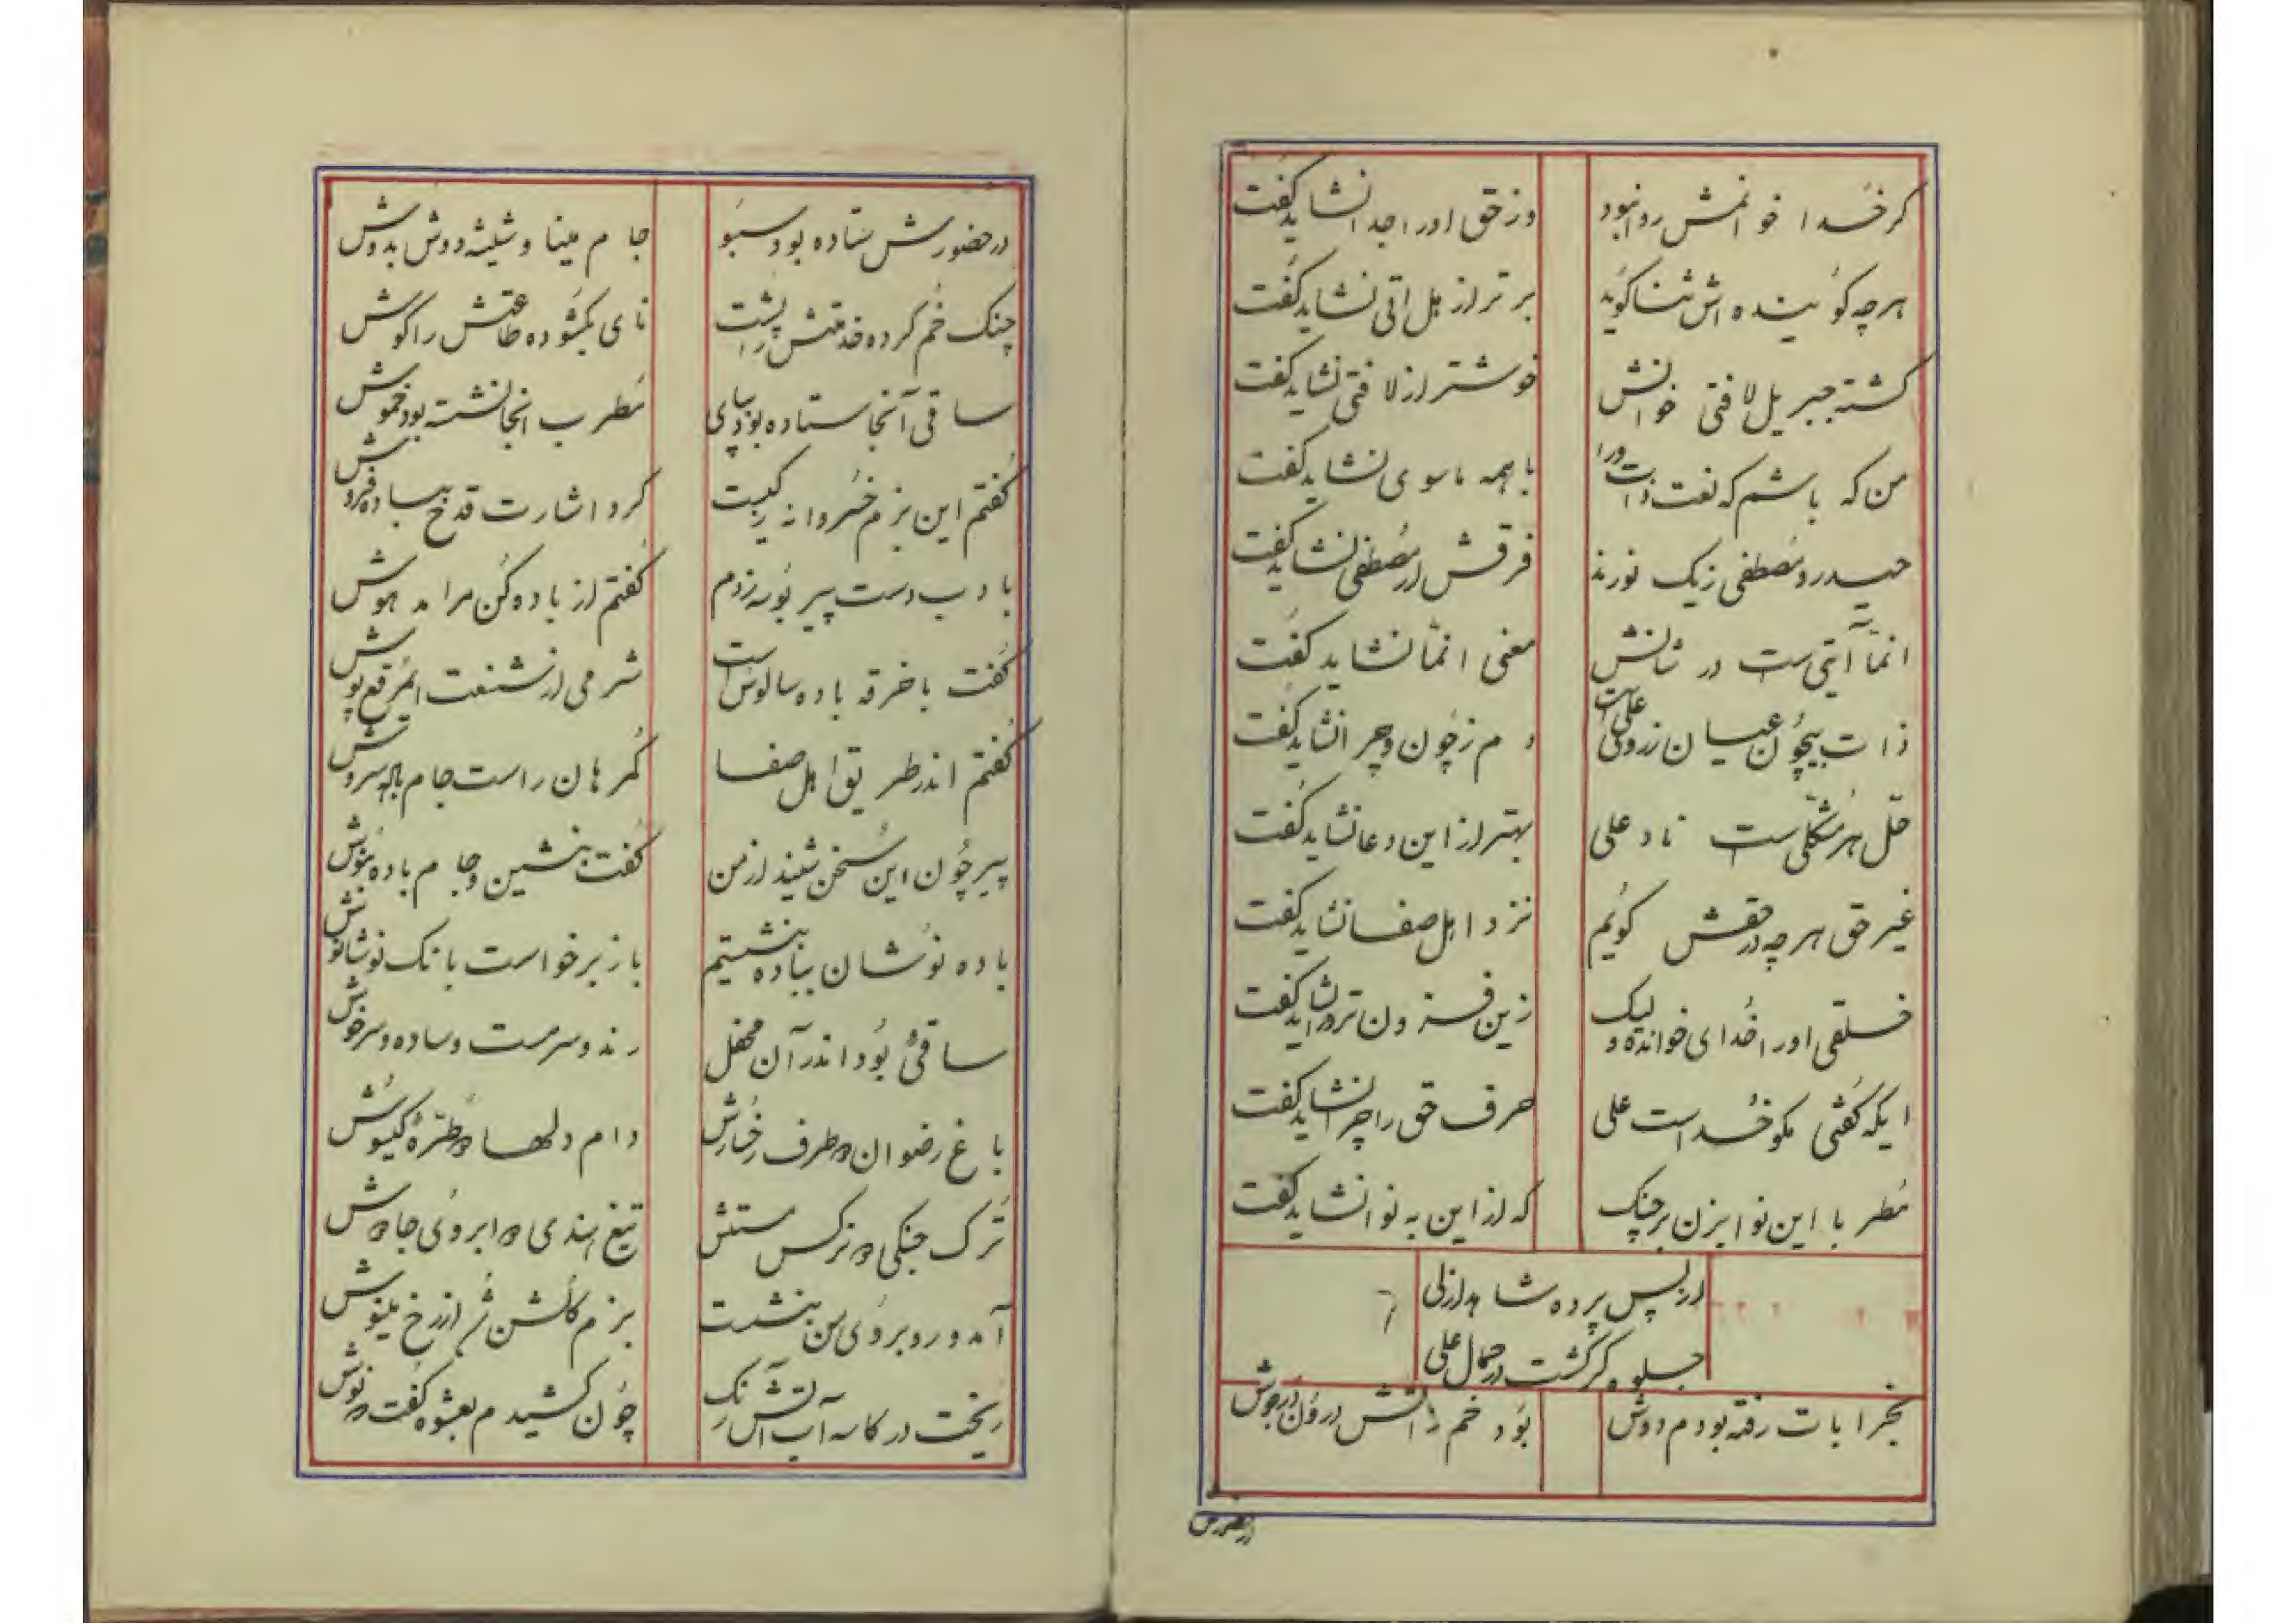 گر خدا خوانمش روا نبود
وز حق او را جدا نشاید گفت
هر چه گوینده اش ثنا گوید
برتر از هل اتی نشاید گفت
گشته جبریل لا فتی خوانش
خوشتر از لا فتی نشاید گفت
من که باشم که نعت ذات ورا
با همه ماسوی نشاید گفت
حیدر و مصطفی ز یک نورند
فرقش از مصطفی نشاید گفت
انما آیتی ست در شانش
معنی انما نشاید گفت
ذات بیچون عیان ز روی علی است
دم ز چون و چرا نشاید گفت
حل هر مشکلی ست ناد علی
بهتر از این دعا نشاید گفت
غیر حق هر چه در حقش گویم
نزد اهل صفا نشاید گفت
خلقی او را خدای خوانده و لیک
زین فزون تر ورا نشاید گفت
ایکه گفتی مگو خداست علی
حرف حق را چرا نشاید گفت
مطربا این نوا بزن بر چنگ
که از این به نوا نشاید گفت
از پس پرده شاهد ازلی
جلوه گر گشت در جمال علی
بخرابات رفته بودم دوش
بود خم ز آتش درون در جوش
در حضورش
در حضورش ستاده بود سبو
جام مینا و شیشه دوش بدوش
چنگ خم کرده خدمتش را پشت
نای بگشوده طاعتش را گوش
ساقی آنجا ستاده بود بپای
مطرب انجا نشسته بود خموش
گفتم این بزم خسروانه ز کیست
کرد اشارت قدح بباده فروش
با ادب دست پیر بوسه زدم
گفتم از باده کن مرا مدهوش
گفت با خرقه باده سالوس است
شرمی از شنعت ای مرقع پوش
گفتم اندر طریق اهل صفا
گمرهان راست جام باده سروش
پیر چون این سخن شنید از من
گفت بنشین و جام باده بنوش
باده نوشان بباده بنشستیم
باز برخواست بانگ نوشانوش
ساقئی بود اندر آن محفل
رند و سرمست و ساده و سرخوش
باغ رضوان در طرف رخسارش
دام دلها در طره گیسوش
ترک جنگی در نرگس مستش
تیغ هندی در ابروی جادوش
آمد و روبروی من بنشست
بزم گلشن شد از رخ مینوش
ریخت در کاسه آب آتش رنگ
چون کشیدم بعشوه گفت بنوش